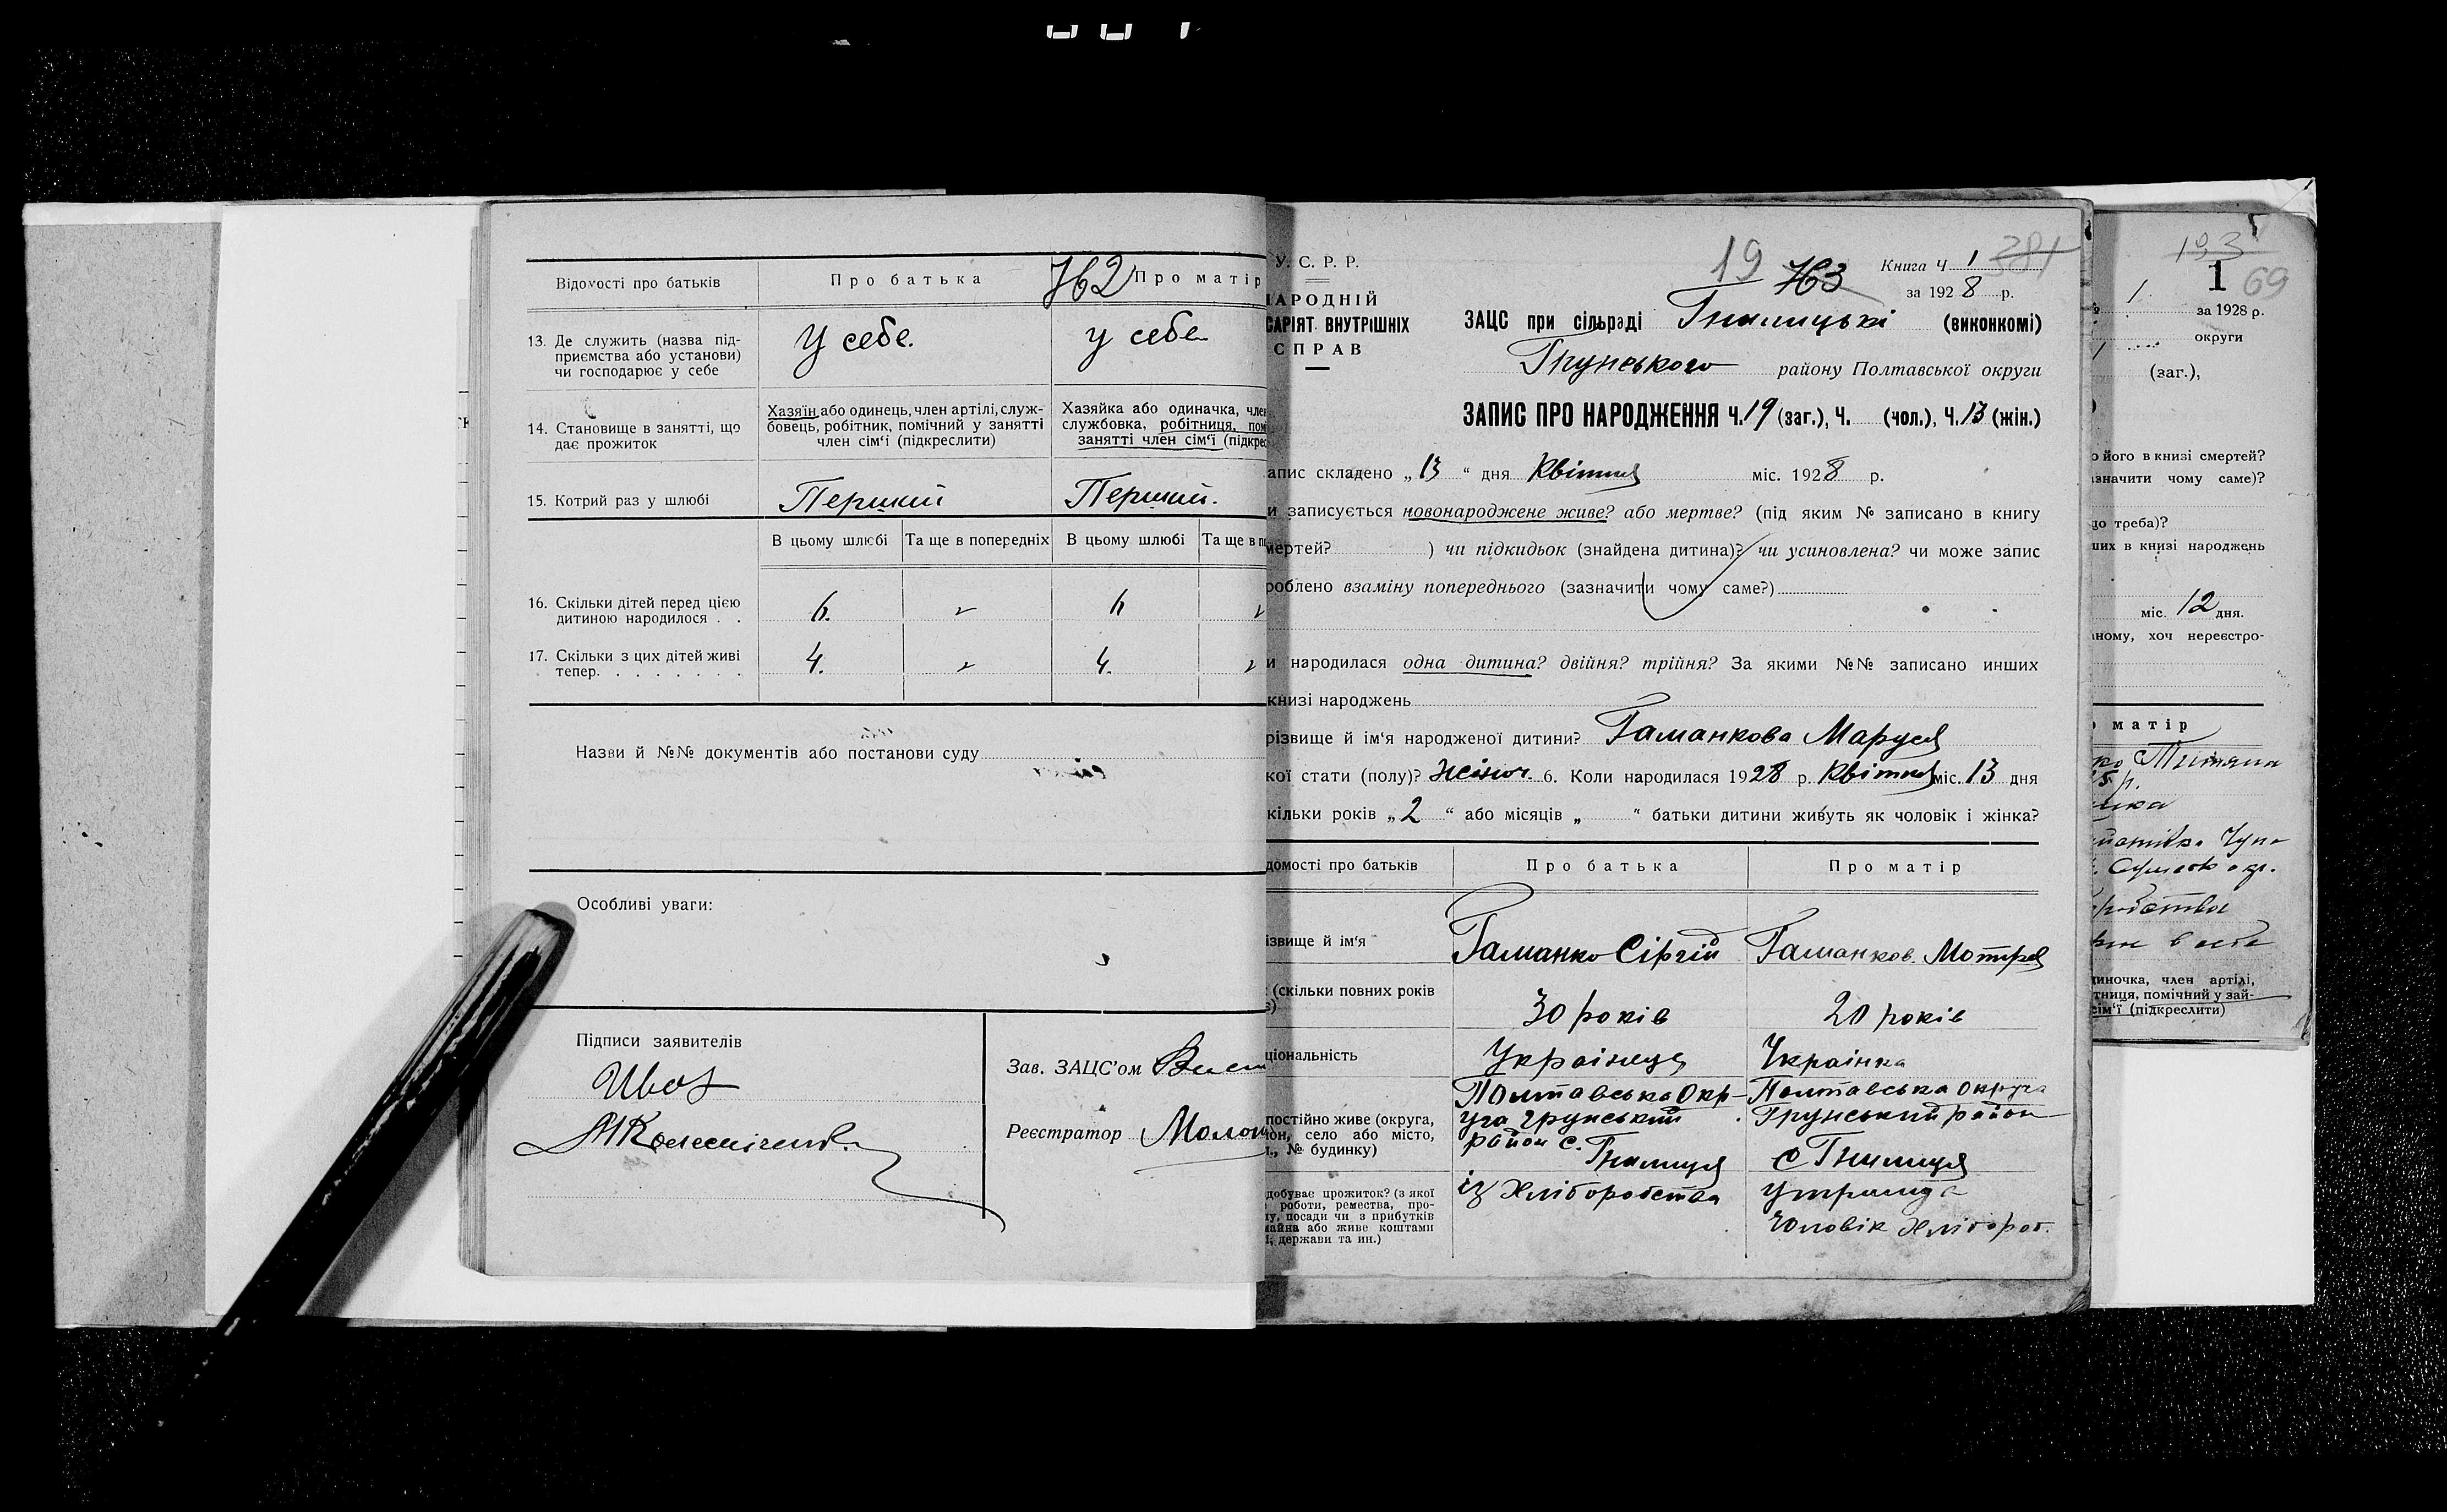 Відомості про батьків
Про батька
762
Про матір
13. Де служить (назва під-
приємства або установи)
чи господарює у себе
У себе.
у себе
14. Становище в занятті, що
дає прожиток
Хазяїн або одинець, член артілі, служ-
бовець, робітник, помічний у занятті
член сім'ї (підкреслити)
Хазяйка або одиначка, член
службовка, робітниця, пом
занятті член сім'ї (підкрес
15. Котрий раз у шлюбі
Перший
Перший.
В цьому шлюбі
Та ще в попередніх
В цьому шлюбі
Та ще в по
16. Скільки дітей перед цією
дитиною народилося . .
6.
6
17. Скільки з цих дітей живі
тепер. . . . . . . .
4.
4.
Назви й №№ документів або постанови суду
Особливі уваги:
Підписи заявителів
Зав. ЗАЦС'ом
Реєстратор
У. С. Р. Р.
НАРОДНІЙ
САРІЯТ ВНУТРІШНІХ
СПРАВ
19 763
Книга Ч 1
за 1928 р.
ЗАЦС при сільраді Гнилицькі (виконкомі)
Грунського району Полтавської округи
ЗАПИС ПРО НАРОДЖЕННЯ Ч. 19 (заг.), Ч. (чол.), Ч. 13 (жін.)
апис складено „13“ дня Квітня міс. 1928 р.
и записується новонароджене живе? або мертве? (під яким № записано в книгу
мертей? ) чи підкидьок (знайдена дитина)? чи усиновлена? чи може запис
роблено взаміну попереднього (зазначити чому саме?)
и народилася одна дитина? двійня? трійня? За якими №№ записано инших
книзі народжень
різвище й ім'я народженої дитини? Гаманкова Маруся
кої стати (полу)? Жіноч. 6. Коли народилася 1928 р. Квітня міс. 13 дня
кільки років „2“ або місяців „ “ батьки дитини живуть як чоловік і жінка?
домості про батьків
Про батька
Про матір
ізвище й ім'я
Гаманко Сіргій
Гаманков. Мотря
(скільки повних років
30 років
20 років
ціональність
Українець
Українка
постійно живе (округа,
он, село або місто,
№ будинку)
Полтавська Окр-
уга Грунський
район с. Гнилиця
Полтавська округа
Грунський район
с Гнилиця
добуває прожиток? (з якої
роботи, ремества, про-
у, посади чи з прибутків
майна або живе коштами
держави та ин.)
із Хліборобства
утримує
Чоловік Хлібороб.
193
1
69
1. за 1928 р.
округи
(заг.),
о його в книзі смертей?
значити чому саме)?
що треба)?
ших в книзі народжень
міс. 12 дня.
ному, хоч нереєстро-
матір
ко Тетяна
5 р.
диночка, член артілі,
тниця, помічний у зай-
сім'ї (підкреслити)